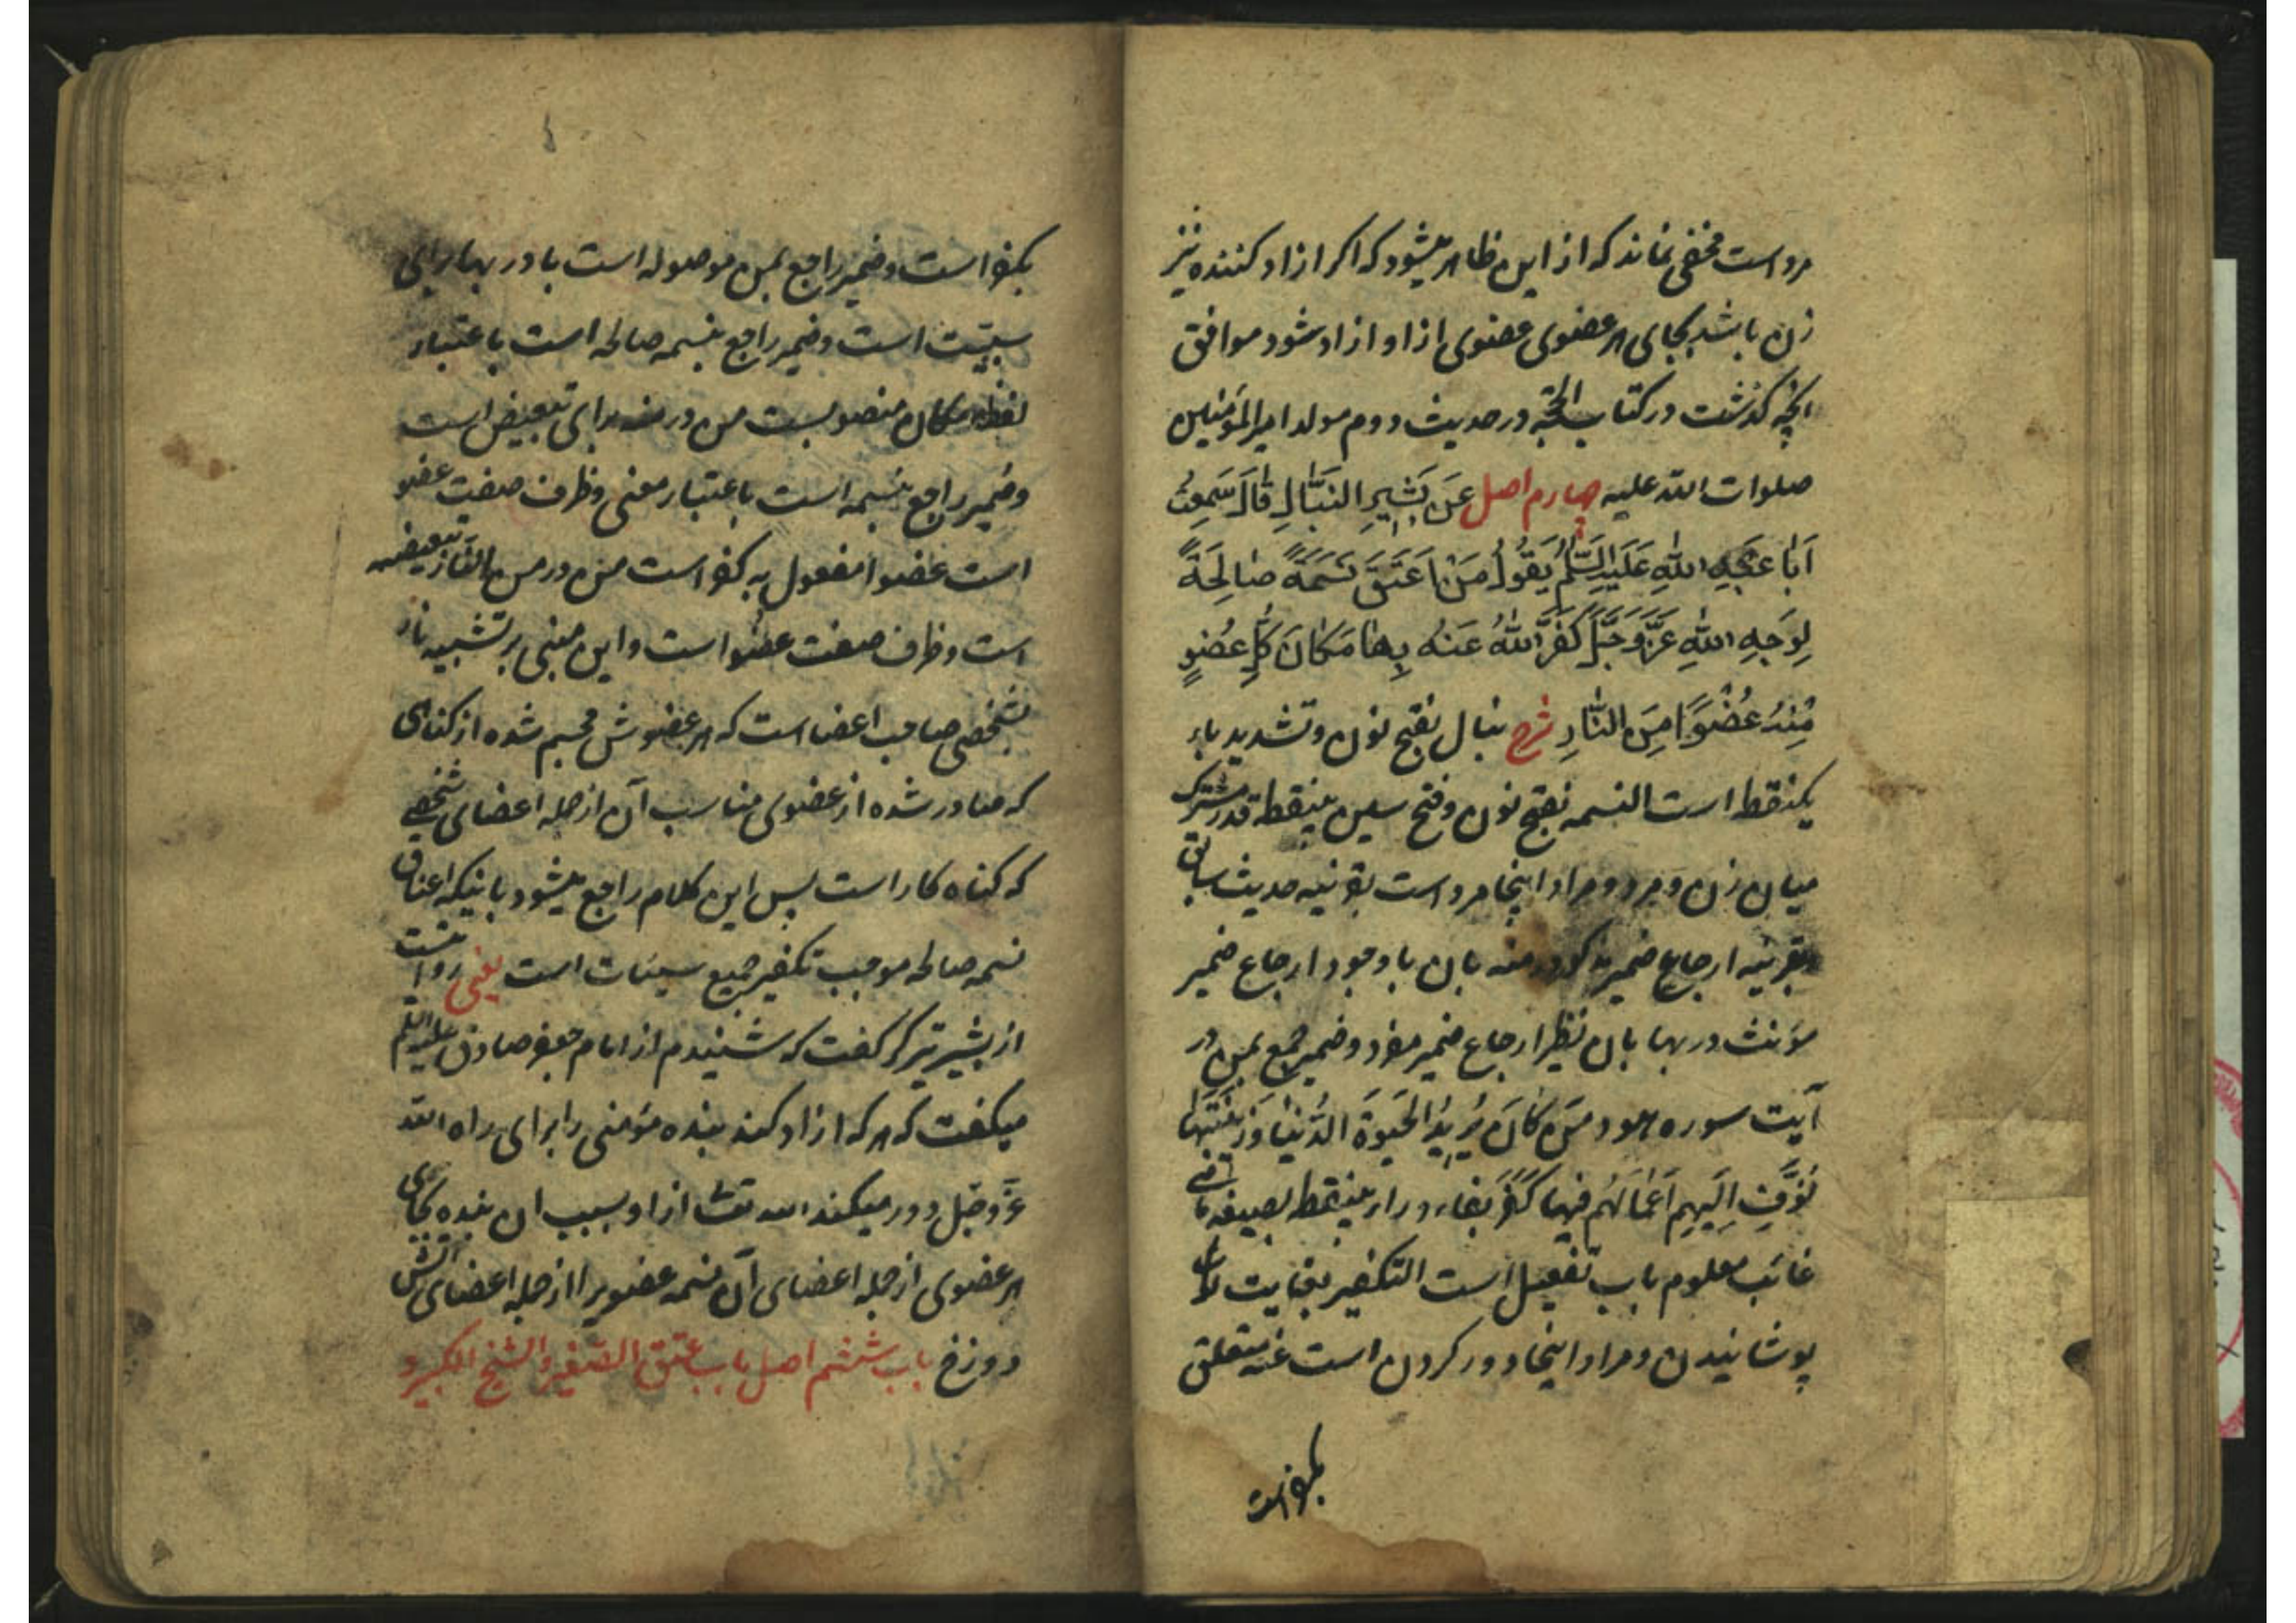 مرد است مخفی نماند که از این ظاهر میشود که اکر ازاد کننده نیز
زن باشد بجای هر عضوی عضوی از او ازاد شود موافق
انچه کذشت در کتاب الحجة در حدیث دوم مولد امیر المؤمنین
صلوات الله علیه چهارم اصل عَن بَشِیرِ النَبَّالِ قَالَ سَمِعتُ
اَبَا عَبدِ اللهِ عَلَیهِ السَّلَمُ یَقُولُ مَن اَعتَقَ نَسَمَةً صَالِحَةً
لِوَجهِ اللهِ عَزَّ وَجَلَّ کَفَّرَ اللهُ عَنهُ بِهَا مَکَانَ کُلِّ عُضوٍ
مِنهُ عُضوًا مِنَ النَّارِ شرح نبال بفتح نون و تشدید باء
یکنقطه است النسمه بفتح نون و فتح سین بینقطه قدر مشترک
میان زن و مرد و مراد اینجا مرد است بقرینه حدیث سابق
و بقرینه ارجاع ضمیر مذکر در منه بان با وجود ارجاع ضمیر
مؤنث در بها بان نظیر ارجاع ضمیر مفرد و ضمیر جمع بمن در
آیت سوره هود مَن کَانَ یُرِیدُ الحَیوةَ الدُّنیَا وَ زِینَتَهَا
نُوَفِّ اِلَیهِم اَعمَالَهُم فِیهَا کَفَّرَ بفاء و راء بینقطه بصیغه ماضی
غائب معلوم باب تفعیل است التکفیر بغایت
پوشانیدن و مراد اینجا دور کردن است عنه متعلق
بکفر است
بکفر است و ضمیر راجع بمن موصوله است با در بها برای
سببیّت است و ضمیر راجع بنسمه صالحه است باعتبار
لفظ مکان منصوبست من در منه برای تبعیض است
و ضمیر راجع بنسمه است باعتبار معنی و ظرف صفت عضو
است عضوا مفعول به کفر است من در من النار تبعیضیه
است و ظرف صفت عضوا است و این مبنی بر تشبیه نار
بشخصی صاحب اعضا است که هر عضوش مجسم شده از کناهی
که صادر شده از عضوی مناسب آن از جمله اعضای شخصی
که کناه کار است پس این کلام راجع میشود باینکه اعتاق
نسمه صالحه موجب تکفیر جمیع سیئات است یعنی روایتست
از بشیر تیرکر کفت که شنیدم از امام جعفر صادق علیه السلم
میکفت که هر که ازاد کند بنده مؤمنی را برای راه الله
عزّ و جل دور میکند الله تعا از او بسبب ان بنده بجای
هر عضوی از جمله اعضای آن نسمه عضویرا از جمله اعضای اتش
دوزخ باب ششم اصل باب عتق الصّغیر و الشیخ الکبیر و